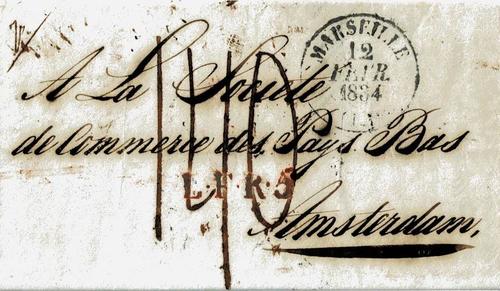 MARSEILLE
12
FEVR.
1834
A La Société
de Commerce des Pays Bas
L.F.R.3
Amsterdam.